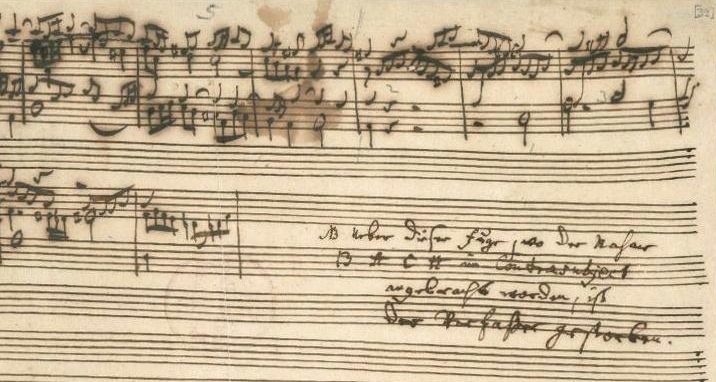 5
NB Ueber dieser Fuge, wo der Nahme
B A C H im Contrasubject
angebracht worden, ist
der Verfaßer gestorben.